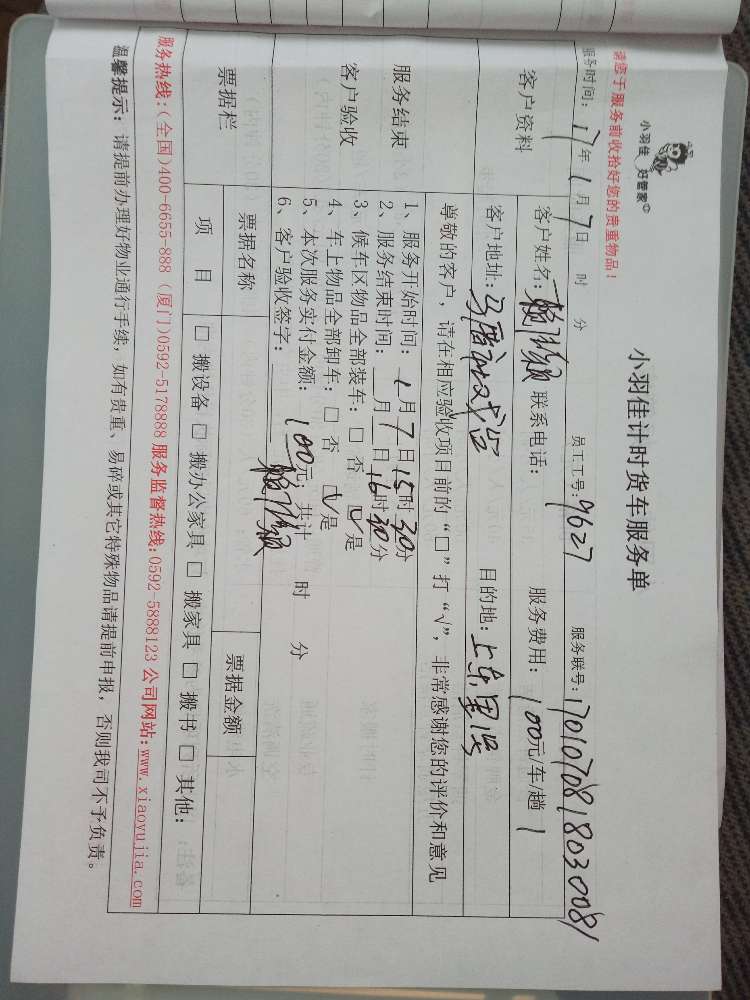 小羽佳 好管家©
请您于服务前收拾好您的贵重物品！
小羽佳计时货车服务单
服务时间：17年1月7日 时 分 员工工号：9627 服务联号：1701070818030081
客户资料
客户姓名： 联系电话： 服务费用：100元/车/趟 1
客户地址： 目的地：
尊敬的客户，请在相应验收项目前的“□”打“√”，非常感谢您的评价和意见
服务结束
客户验收
1、服务开始时间：1月7日15时30分
2、服务结束时间： 月 日16时30分
3、候车区物品全部装车：□ 否 ☑ 是
4、车上物品全部卸车：□ 否 ☑ 是
5、本次服务实付金额：100元；共计 时 分
6、客户验收签字：
票据栏 票据名称 票据金额
项 目 □ 搬设备 □ 搬办公家具 □ 搬家具 □ 搬书 □ 其他：
服务热线：(全国)400-6655-888 (厦门)0592-5178888 服务监督热线：0592-5888123 公司网站：www.xiaoyujia.com
温馨提示：请提前办理好物业通行手续，如有贵重、易碎或其它特殊物品请提前申报，否则我司不予负责。